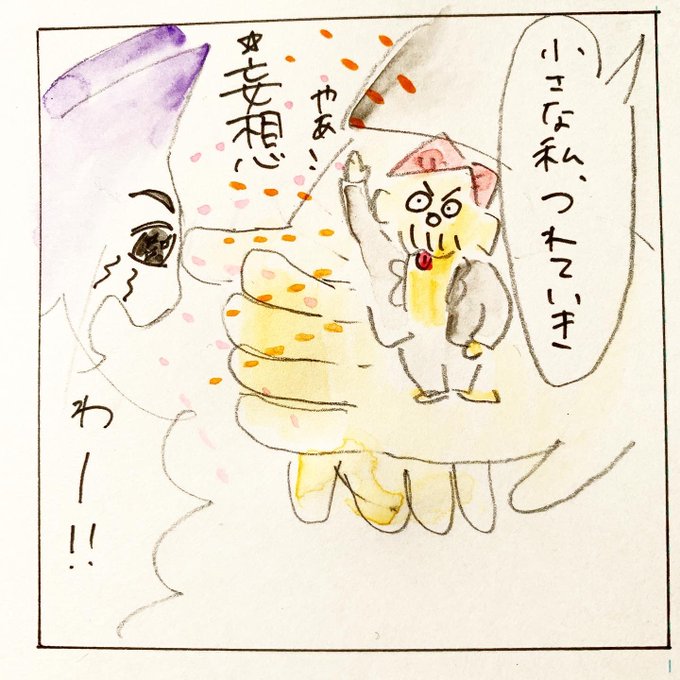 小さな私、つれていき
☆妄想
やあ!
わー!!